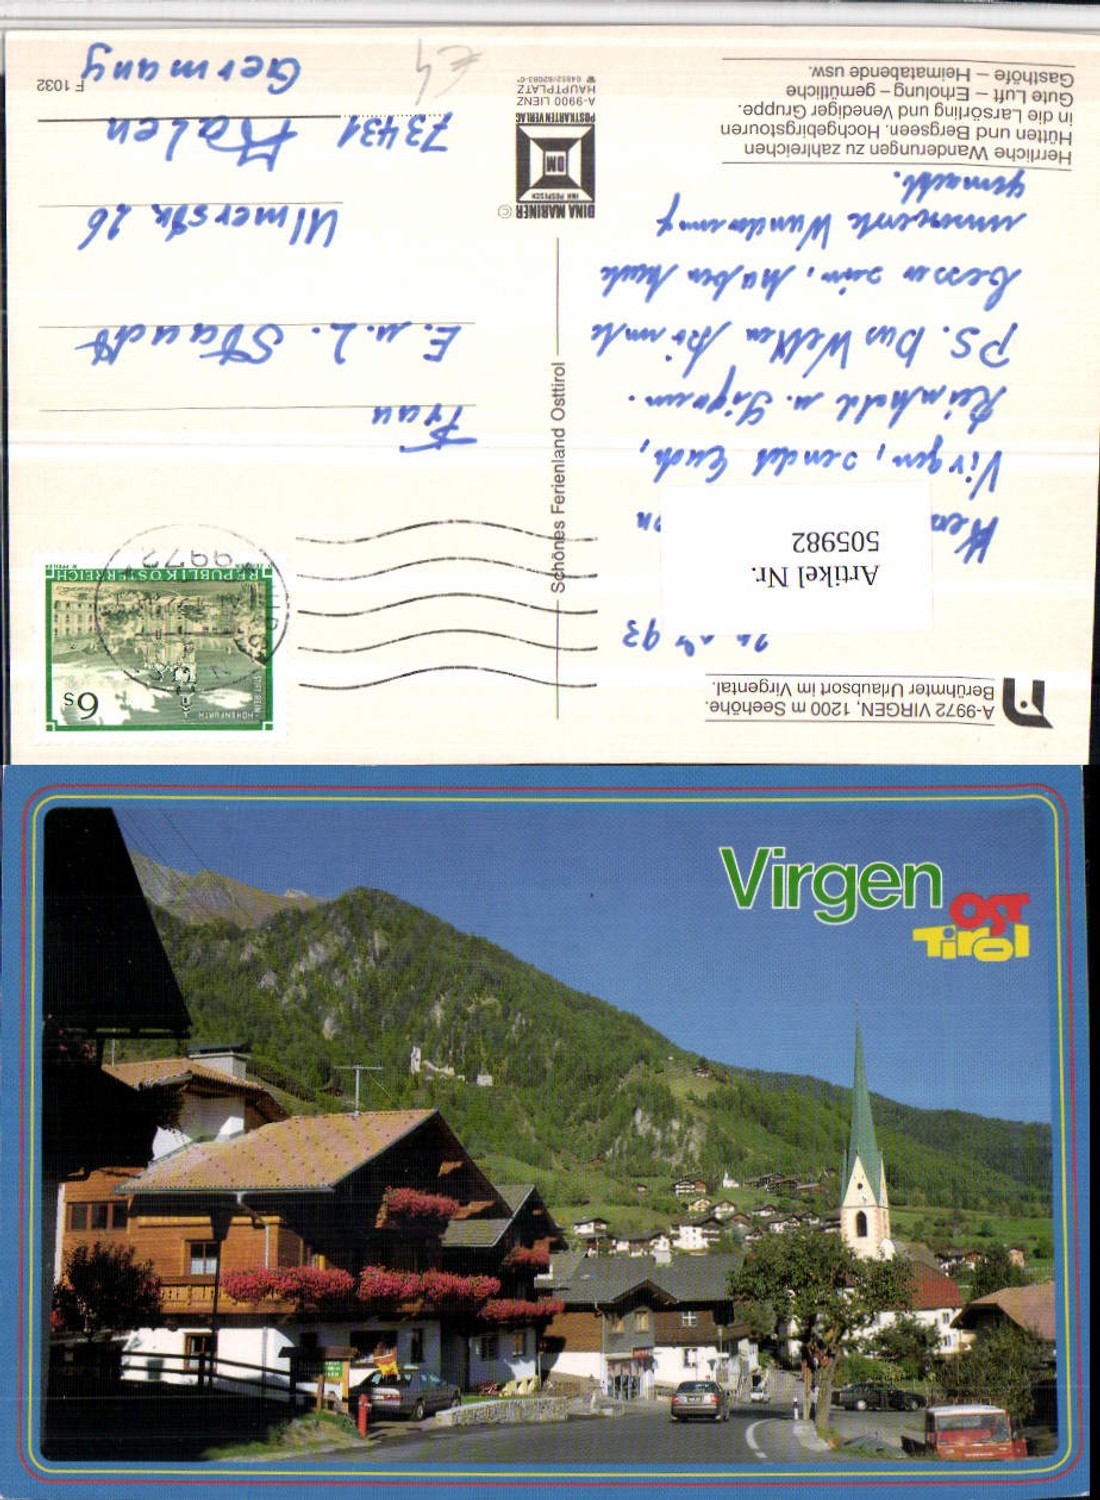 A-9972 VIRGEN, 1200 m Seehöhe.
Berühmter Urlaubsort im Virgental.
93
Artikel Nr.
505982
Virgen, sendet Euch,
Reinhold u.
PS. Das Wetter könnte
besser sein, haben heute
Wanderung
gemacht.
Herrliche Wanderungen zu zahlreichen
Hütten und Bergseen. Hochgebirgstouren
in die Larsörling und Venediger Gruppe.
Gute Luft – Erholung – gemütliche
Gasthöfe – Heimatabende usw.
Schönes Ferienland Osttirol
DINA MARINER ©
INH. POSPESCH
DM
POSTKARTEN VERLAG
A-9900 LIENZ
HAUPTPLATZ
☎ 04852/62083-0*
6s
STIFT REIN-
HOHENFURTH
REPUBLIK ÖSTERREICH
9972
Frau
E. u. L. Staudt
Ulmerstr. 26
73431 Aalen
Germany
F 1032
€4
Virgen
OST
Tirol